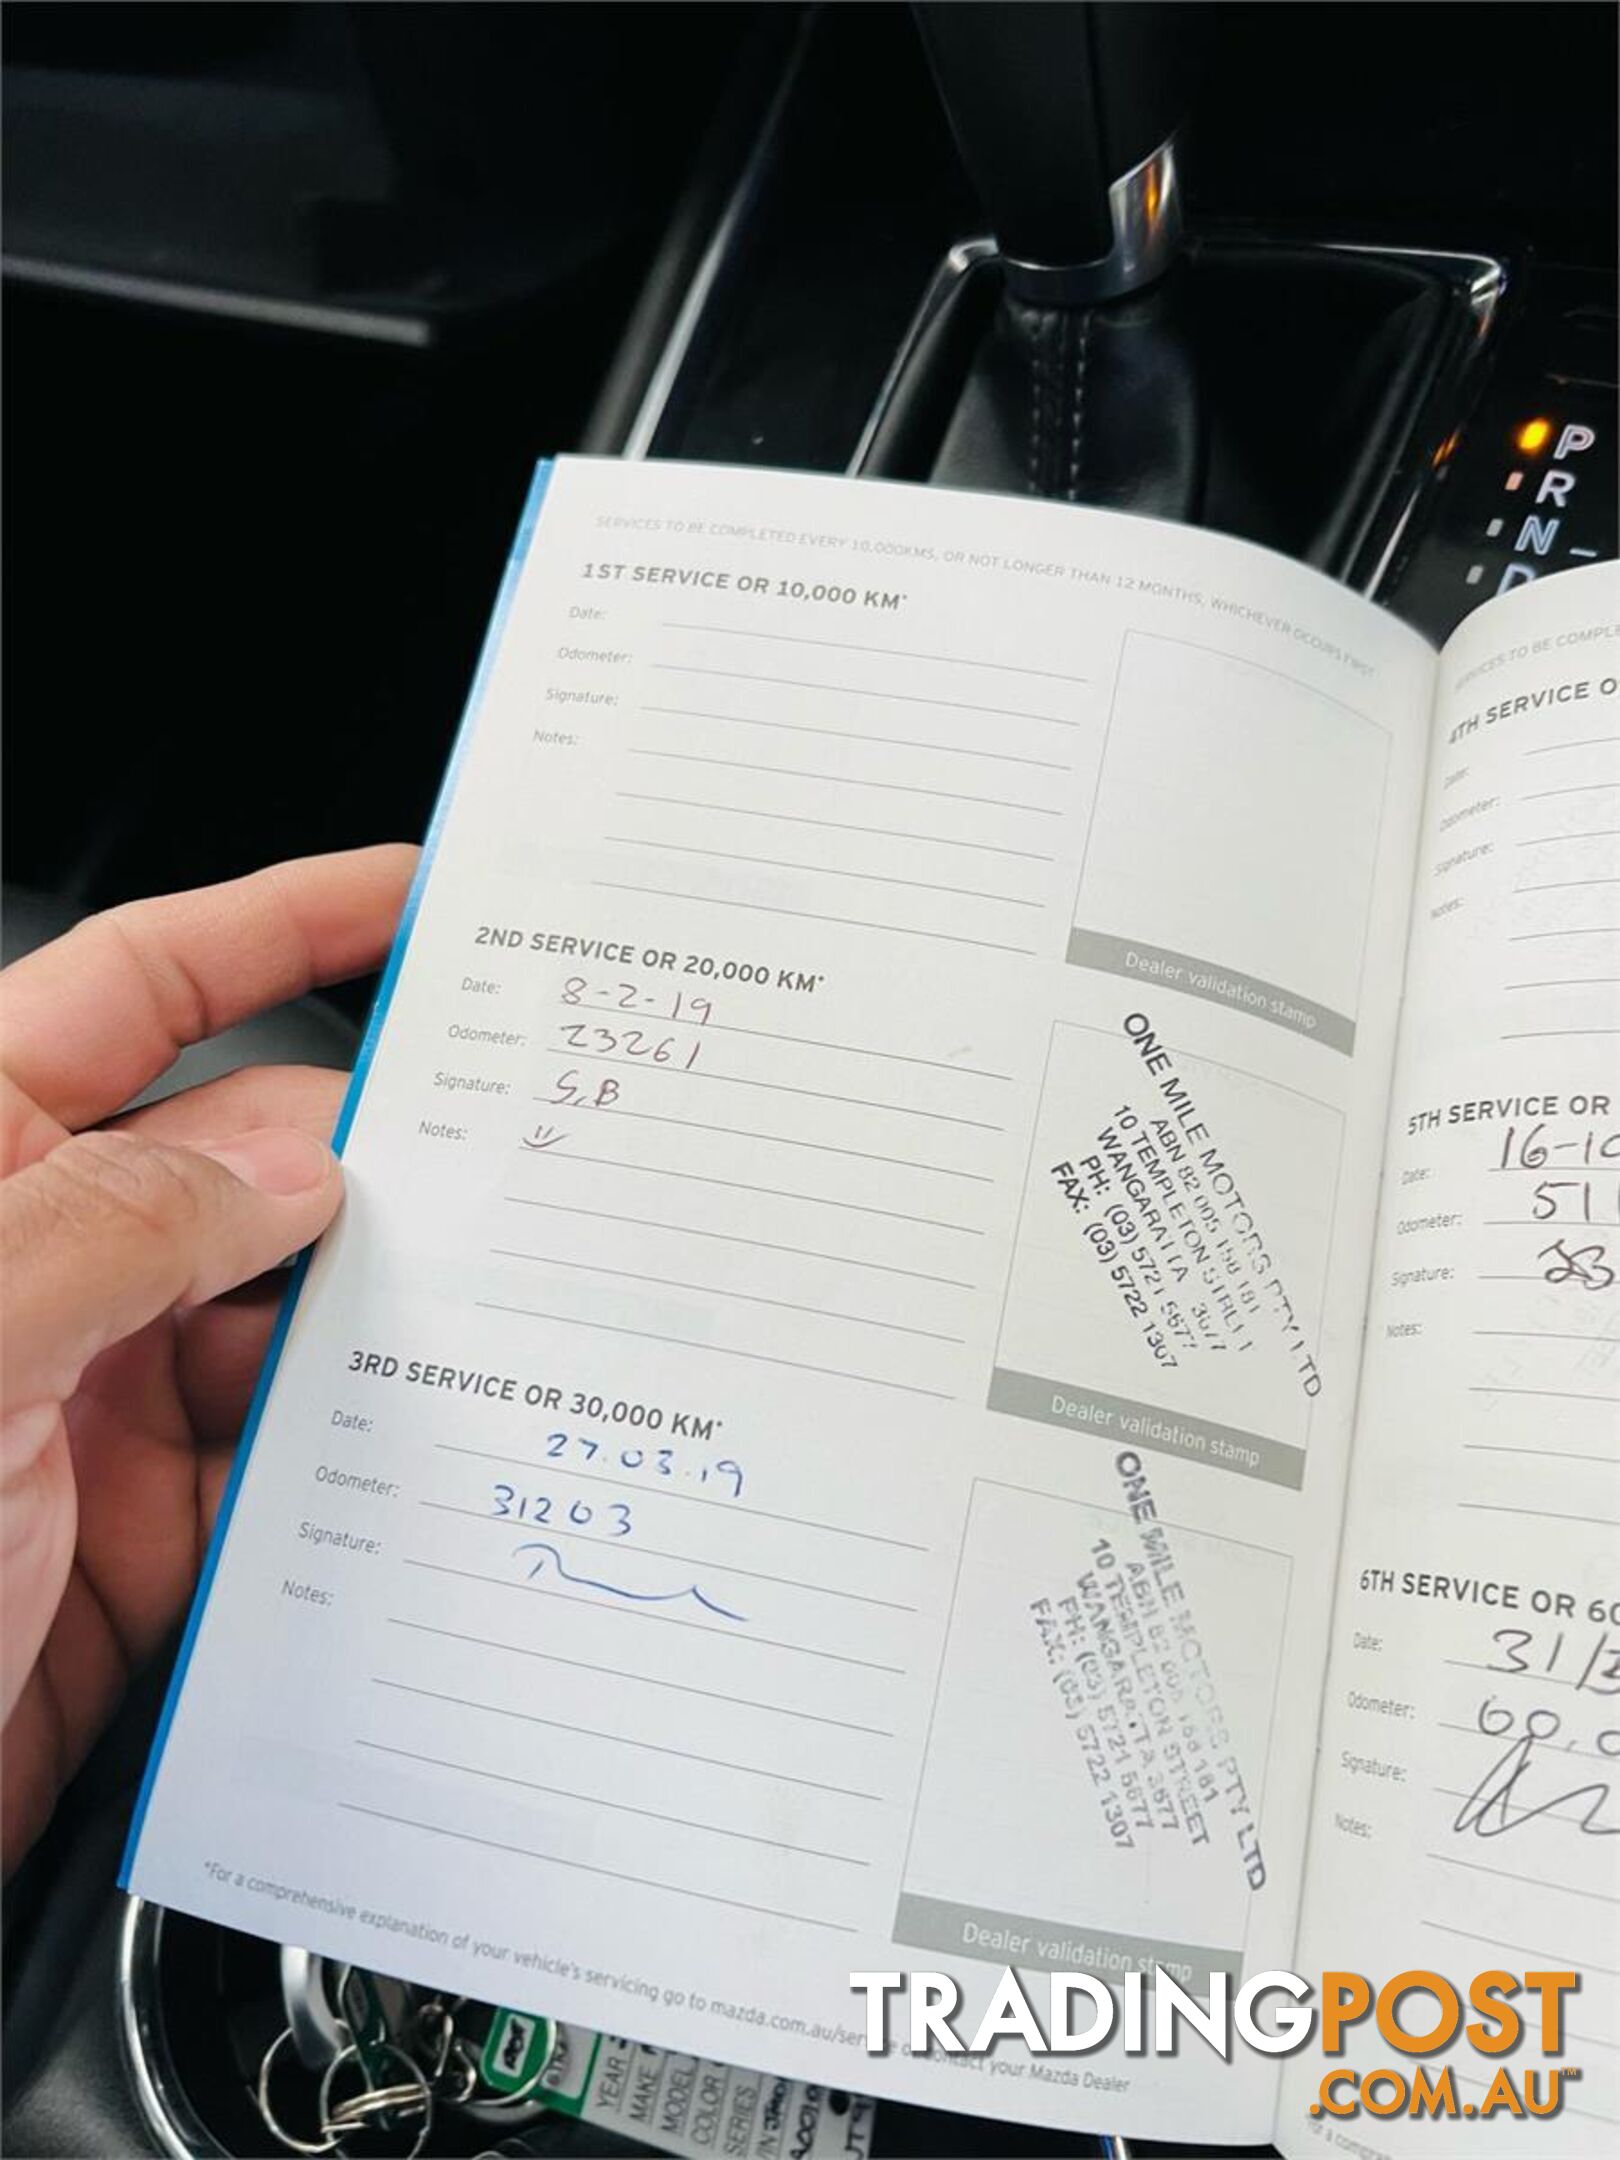 SERVICES TO BE COMPLETED EVERY 10,000KMS, OR NOT LONGER THAN 12 MONTHS, WHICHEVER OCCURS FIRST
1ST SERVICE OR 10,000 KM*
Date:
Odometer:
Signature:
Notes:
Dealer validation stamp
2ND SERVICE OR 20,000 KM*
Date: 8-2-19
Odometer: 23261
Signature: S.B
Notes:
ONE MILE MOTORS PTY LTD
ABN 82 005 158 181
10 TEMPLETON STREET
WANGARATTA 3677
PH: (03) 5721 5677
FAX: (03) 5722 1307
Dealer validation stamp
3RD SERVICE OR 30,000 KM*
Date: 27.03.19
Odometer: 31203
Signature:
Notes:
ONE MILE MOTORS PTY LTD
ABN 82 005 158 181
10 TEMPLETON STREET
WANGARATTA 3677
PH: (03) 5721 5677
FAX: (03) 5722 1307
Dealer validation stamp
*For a comprehensive explanation of your vehicle's servicing go to mazda.com.au/service or contact your Mazda Dealer
SERVICES TO BE COMPLE
4TH SERVICE O
Date:
Odometer:
Signature:
Notes:
5TH SERVICE OR
Date: 16-10
Odometer: 511
Signature:
Notes:
6TH SERVICE OR 60
Date: 31/
Odometer: 60,0
Signature:
Notes:
P
R
N
D
YEAR
MAKE
MODEL
COLOR
SERIES
TRADINGPOST
.COM.AU™